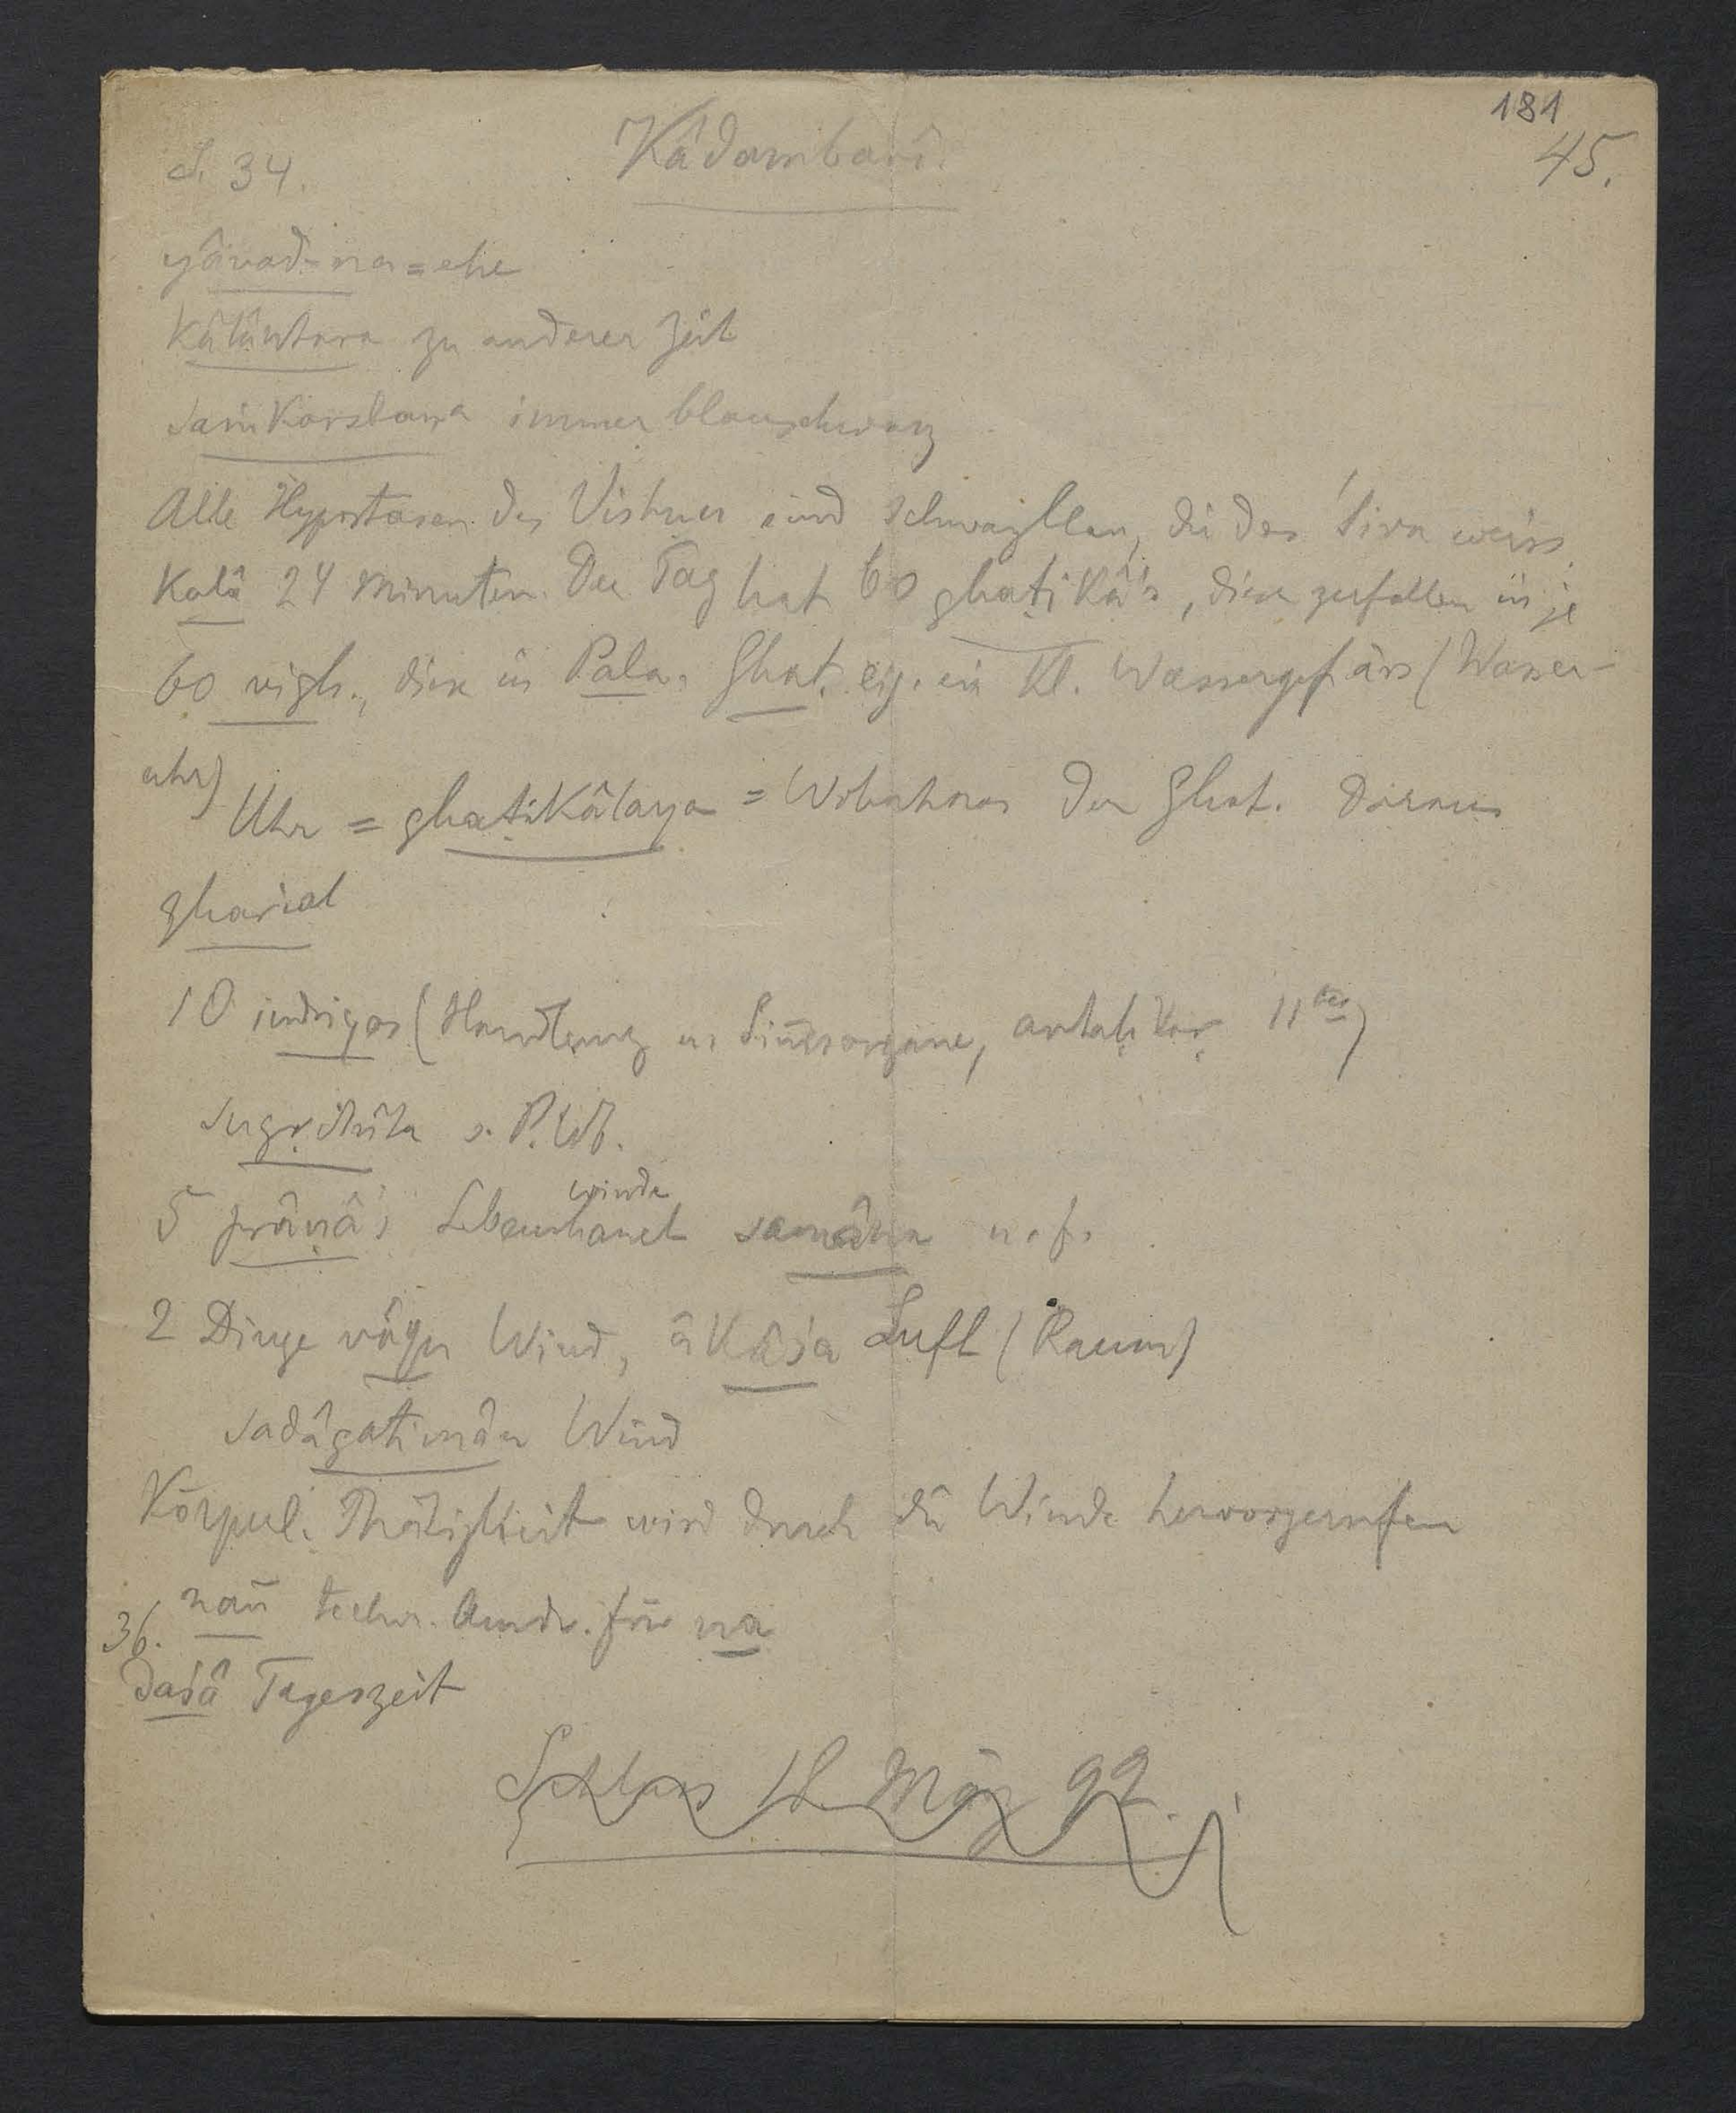 181
S. 34. Kâdambarî. 45.
yâvad-na = ehe
kâlântara zu anderer Zeit
saṅkarshaṇa immer blauschwarz
Alle Hypostasen des Vishnu sind schwarzblau, die des Śiva weiss
Kalâ 24 Minuten. Der Tag hat 60 ghaṭikâ's, diese zerfallen in je
60 vigh., diese in Pala. Ghaṭ. eig. ein kl. Wassergefäss (Wasser-
uhr)
Uhr = ghaṭikâlaya = Wohnhaus der Ghaṭ. daraus
gharial
10 indriyas (Handlung u. Sinnesorgane, antaḥkar. 11tes)
sugṛihîta s. P.Wb.
winde
5 prâṇâ's Lebenshauch samâna u.s.f.
2 Dinge vâyu Wind, âkâśa Luft (Raum)
sadâgatimân Wind
Körperl. Thätigkeit wird durch die Winde hervorgerufen
36. nañ techn. Ausdr. für na
daśâ Tageszeit
Schluss 18 März 92.